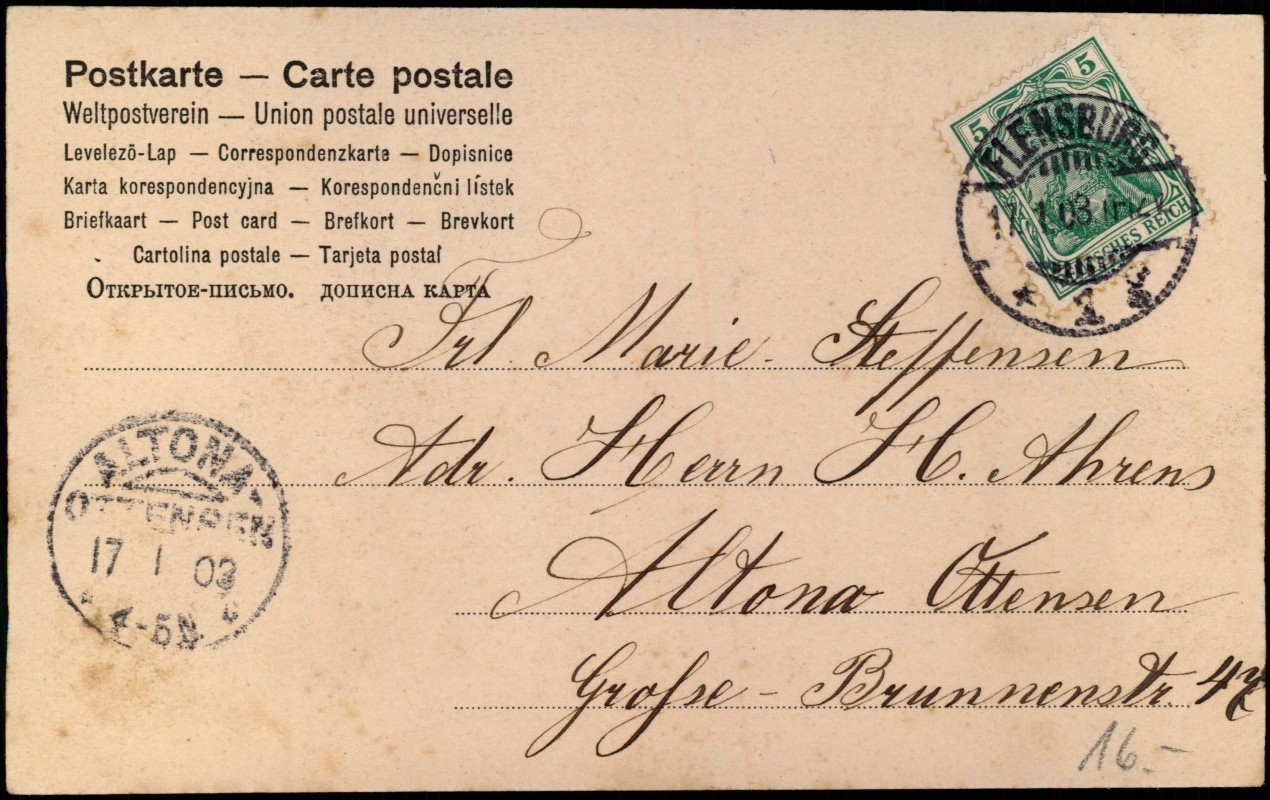 Postkarte — Carte postale
Weltpostverein — Union postale universelle
Levelező-Lap — Correspondenzkarte — Dopisnice
Karta korespondencyjna — Korespondenčni lístek
Briefkaart — Post card — Brefkort — Brevkort
Cartolina postale — Tarjeta postal
Открытое-письмо. дописна карта
5 5
DEUTSCHES REICH
FLENSBURG
17.1.03
* 1 *
Frl. Marie Steffensen
Adr. Herrn H. Ahrens
Altona Ottensen
Grosse-Brunnenstr. 47
ALTONA-
OTTENSEN
17 1 03
4-5N
16.-